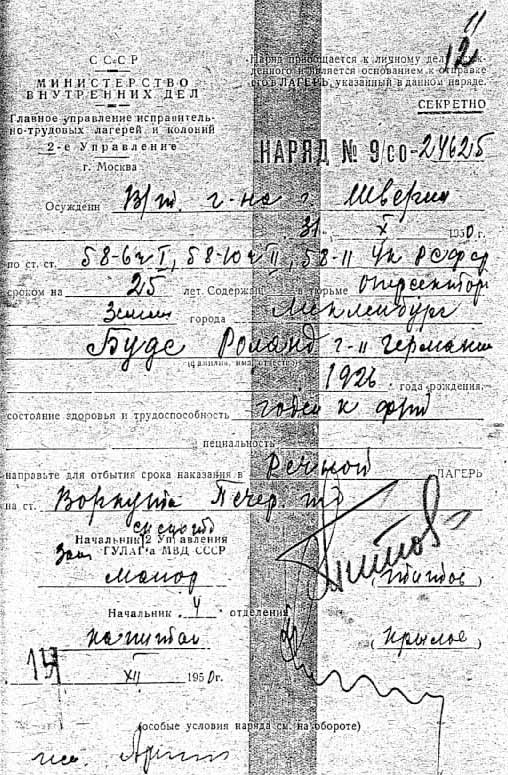 СССР
МИНИСТЕРСТВО
ВНУТРЕННИХ ДЕЛ
Главное управление исправитель-
но-трудовых лагерей и колоний
2-е Управление
г. Москва
12
Наряд приобщается к личному делу
денного и является основанием к отправке
его в ЛАГЕРЬ, указанный в данном наряде.
СЕКРЕТНО
НАРЯД № 9/со-24625
Осужденн В/т. г-на г. Шверин
31 X 1950 г.
по ст. ст. 58-6 ч I, 58-10 ч II, 58-11 УК РСФСР
сроком на 25 лет. Содержащ в тюрьме
города Мекленбург
Буде Роланд г-н Германии
(фамилия, имя, отчество)
1926 года рождения.
состояние здоровья и трудоспособность годен к
специальность
направьте для отбытия срока наказания в Речной ЛАГЕРЬ
на ст. Воркута Печер. жд
Зам Начальник 2 Управления
ГУЛАГ'а МВД СССР
майор
Начальник 4 отделения
капитан (Крылов)
14 XII 1950 г.
(особые условия наряда см. на обороте)